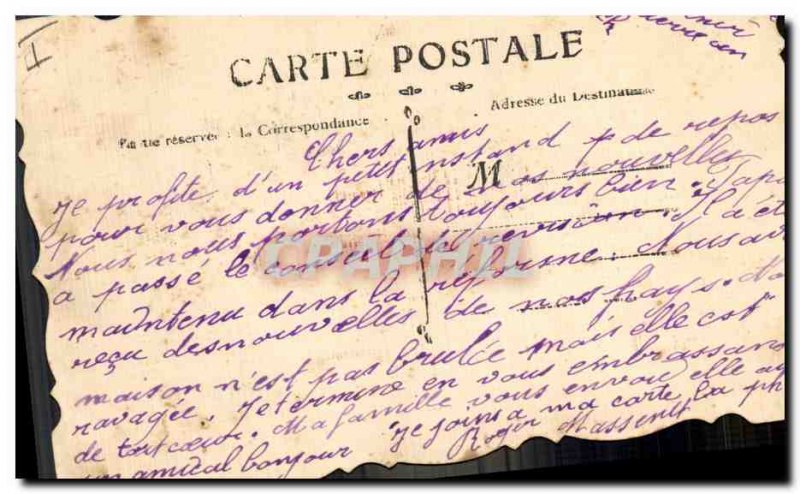 CARTE POSTALE
Partie réservée à la Correspondance
Adresse du Destinataire
M
Chers amis
Je profite d'un petit instand de repos
pour vous donner de nos nouvelles
Nous nous portons toujours bien. Papa
a passé le conseil de revision. Il a été
maintenu dans la réforme. Nous av
reçu des nouvelles de nos pays. No
maison n'est pas brulée mais elle est
ravagée. Je termine en vous embrassan
de tout cœur. Ma famille vous envoie elle au
un amical bonjour Je joins a ma carte la ph
Roger Massenet
CPAPHIL